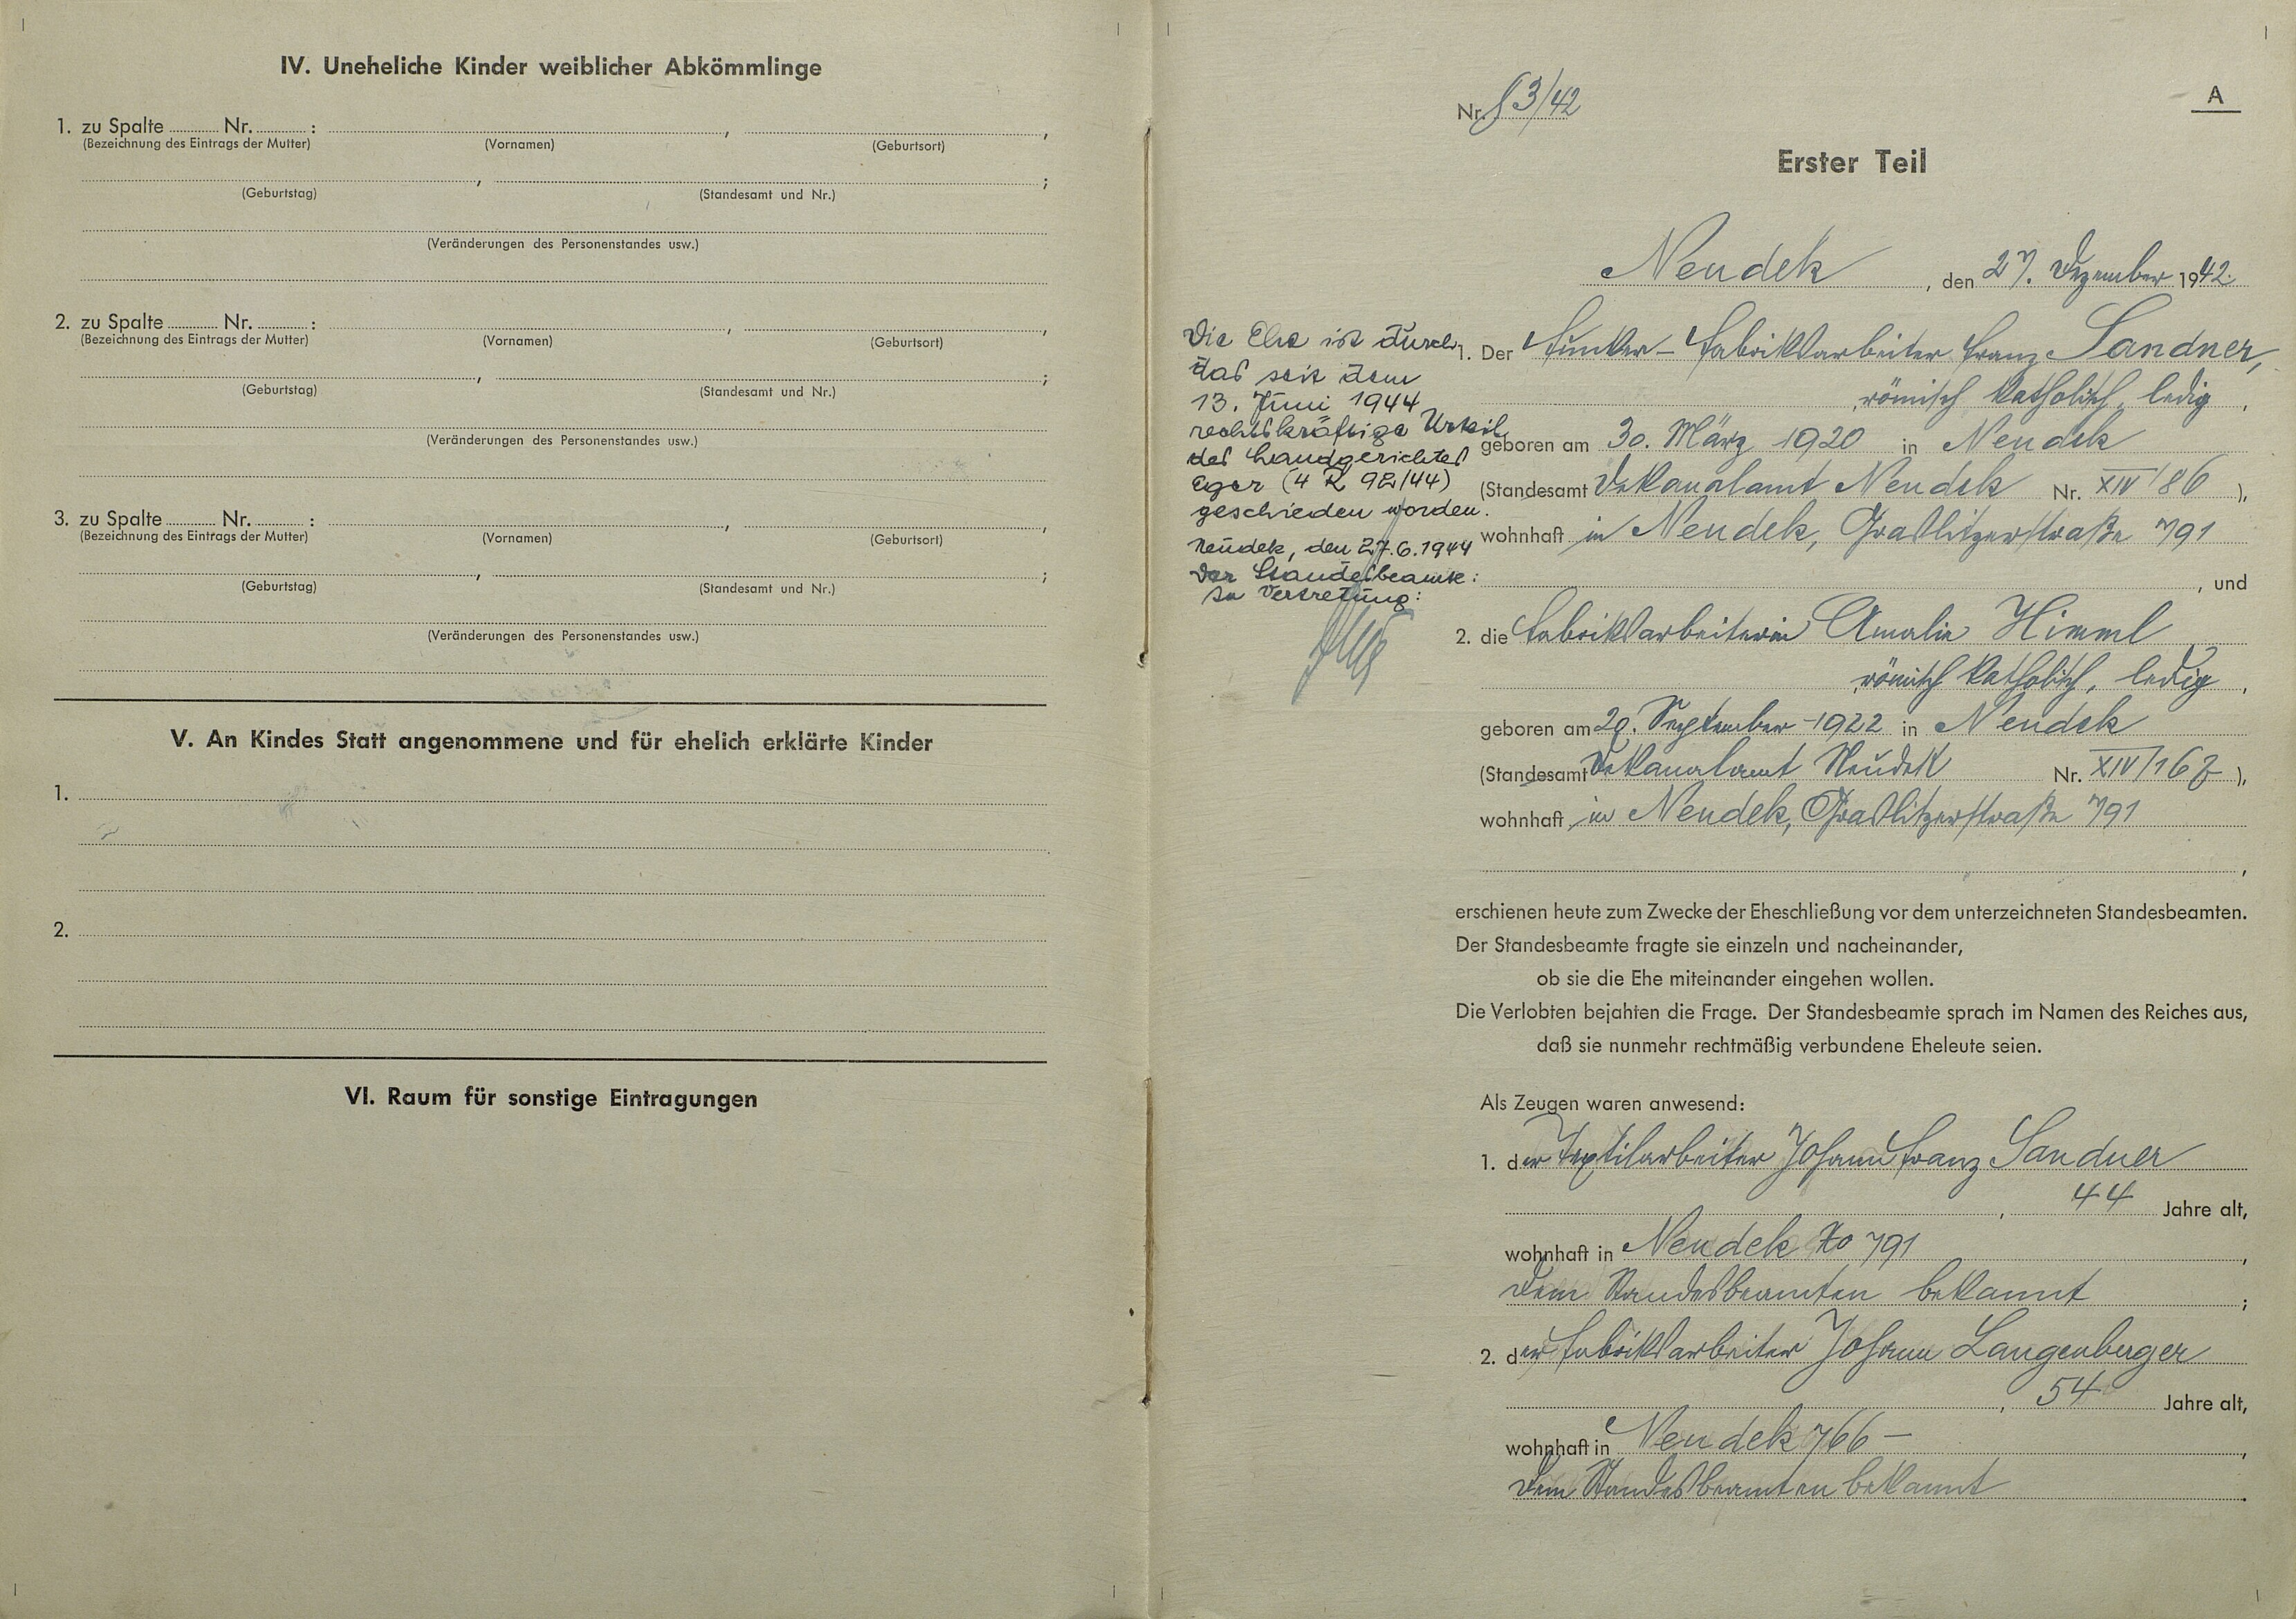 IV. Uneheliche Kinder weiblicher Abkömmlinge
1. zu Spalte ........ Nr. ........ :
(Bezeichnung des Eintrags der Mutter) (Vornamen) (Geburtsort)
(Geburtstag) (Standesamt und Nr.)
(Veränderungen des Personenstandes usw.)
2. zu Spalte ........ Nr. ........ :
(Bezeichnung des Eintrags der Mutter) (Vornamen) (Geburtsort)
(Geburtstag) (Standesamt und Nr.)
(Veränderungen des Personenstandes usw.)
3. zu Spalte ........ Nr. ........ :
(Bezeichnung des Eintrags der Mutter) (Vornamen) (Geburtsort)
(Geburtstag) (Standesamt und Nr.)
(Veränderungen des Personenstandes usw.)
V. An Kindes Statt angenommene und für ehelich erklärte Kinder
1.
2.
VI. Raum für sonstige Eintragungen
A
Nr. 83/42
Erster Teil
Neudek, den 27. Dezember 1942.
Die Ehe ist durch
das seit dem
13. Juni 1944
rechtskräftige Urteil
des Landgerichtes
Eger (4 R 92/44)
geschieden worden.
Neudek, den 27.6.1944
Der Standesbeamte:
In Vertretung:
1. Der Funker-Fabriksarbeiter Franz Sandner,
römisch katholisch, ledig,
geboren am 30. März 1920 in Neudek
(Standesamt Dekanalamt Neudek Nr. XIV/86),
wohnhaft in Neudek, Graslitzerstraße 791
, und
2. die Fabriksarbeiterin Amalia Himml
römisch katholisch, ledig,
geboren am 28. September 1922 in Neudek
(Standesamt Dekanalamt Neudek Nr. XIV/168),
wohnhaft in Neudek, Graslitzerstraße 791
,
erschienen heute zum Zwecke der Eheschließung vor dem unterzeichneten Standesbeamten.
Der Standesbeamte fragte sie einzeln und nacheinander,
ob sie die Ehe miteinander eingehen wollen.
Die Verlobten bejahten die Frage. Der Standesbeamte sprach im Namen des Reiches aus,
daß sie nunmehr rechtmäßig verbundene Eheleute seien.
Als Zeugen waren anwesend:
1. der Textilarbeiter Johann Franz Sandner
, 44 Jahre alt,
wohnhaft in Neudek No 791,
dem Standesbeamten bekannt;
2. der Fabriksarbeiter Johann Langenberger
, 54 Jahre alt,
wohnhaft in Neudek 766 –,
dem Standesbeamten bekannt.